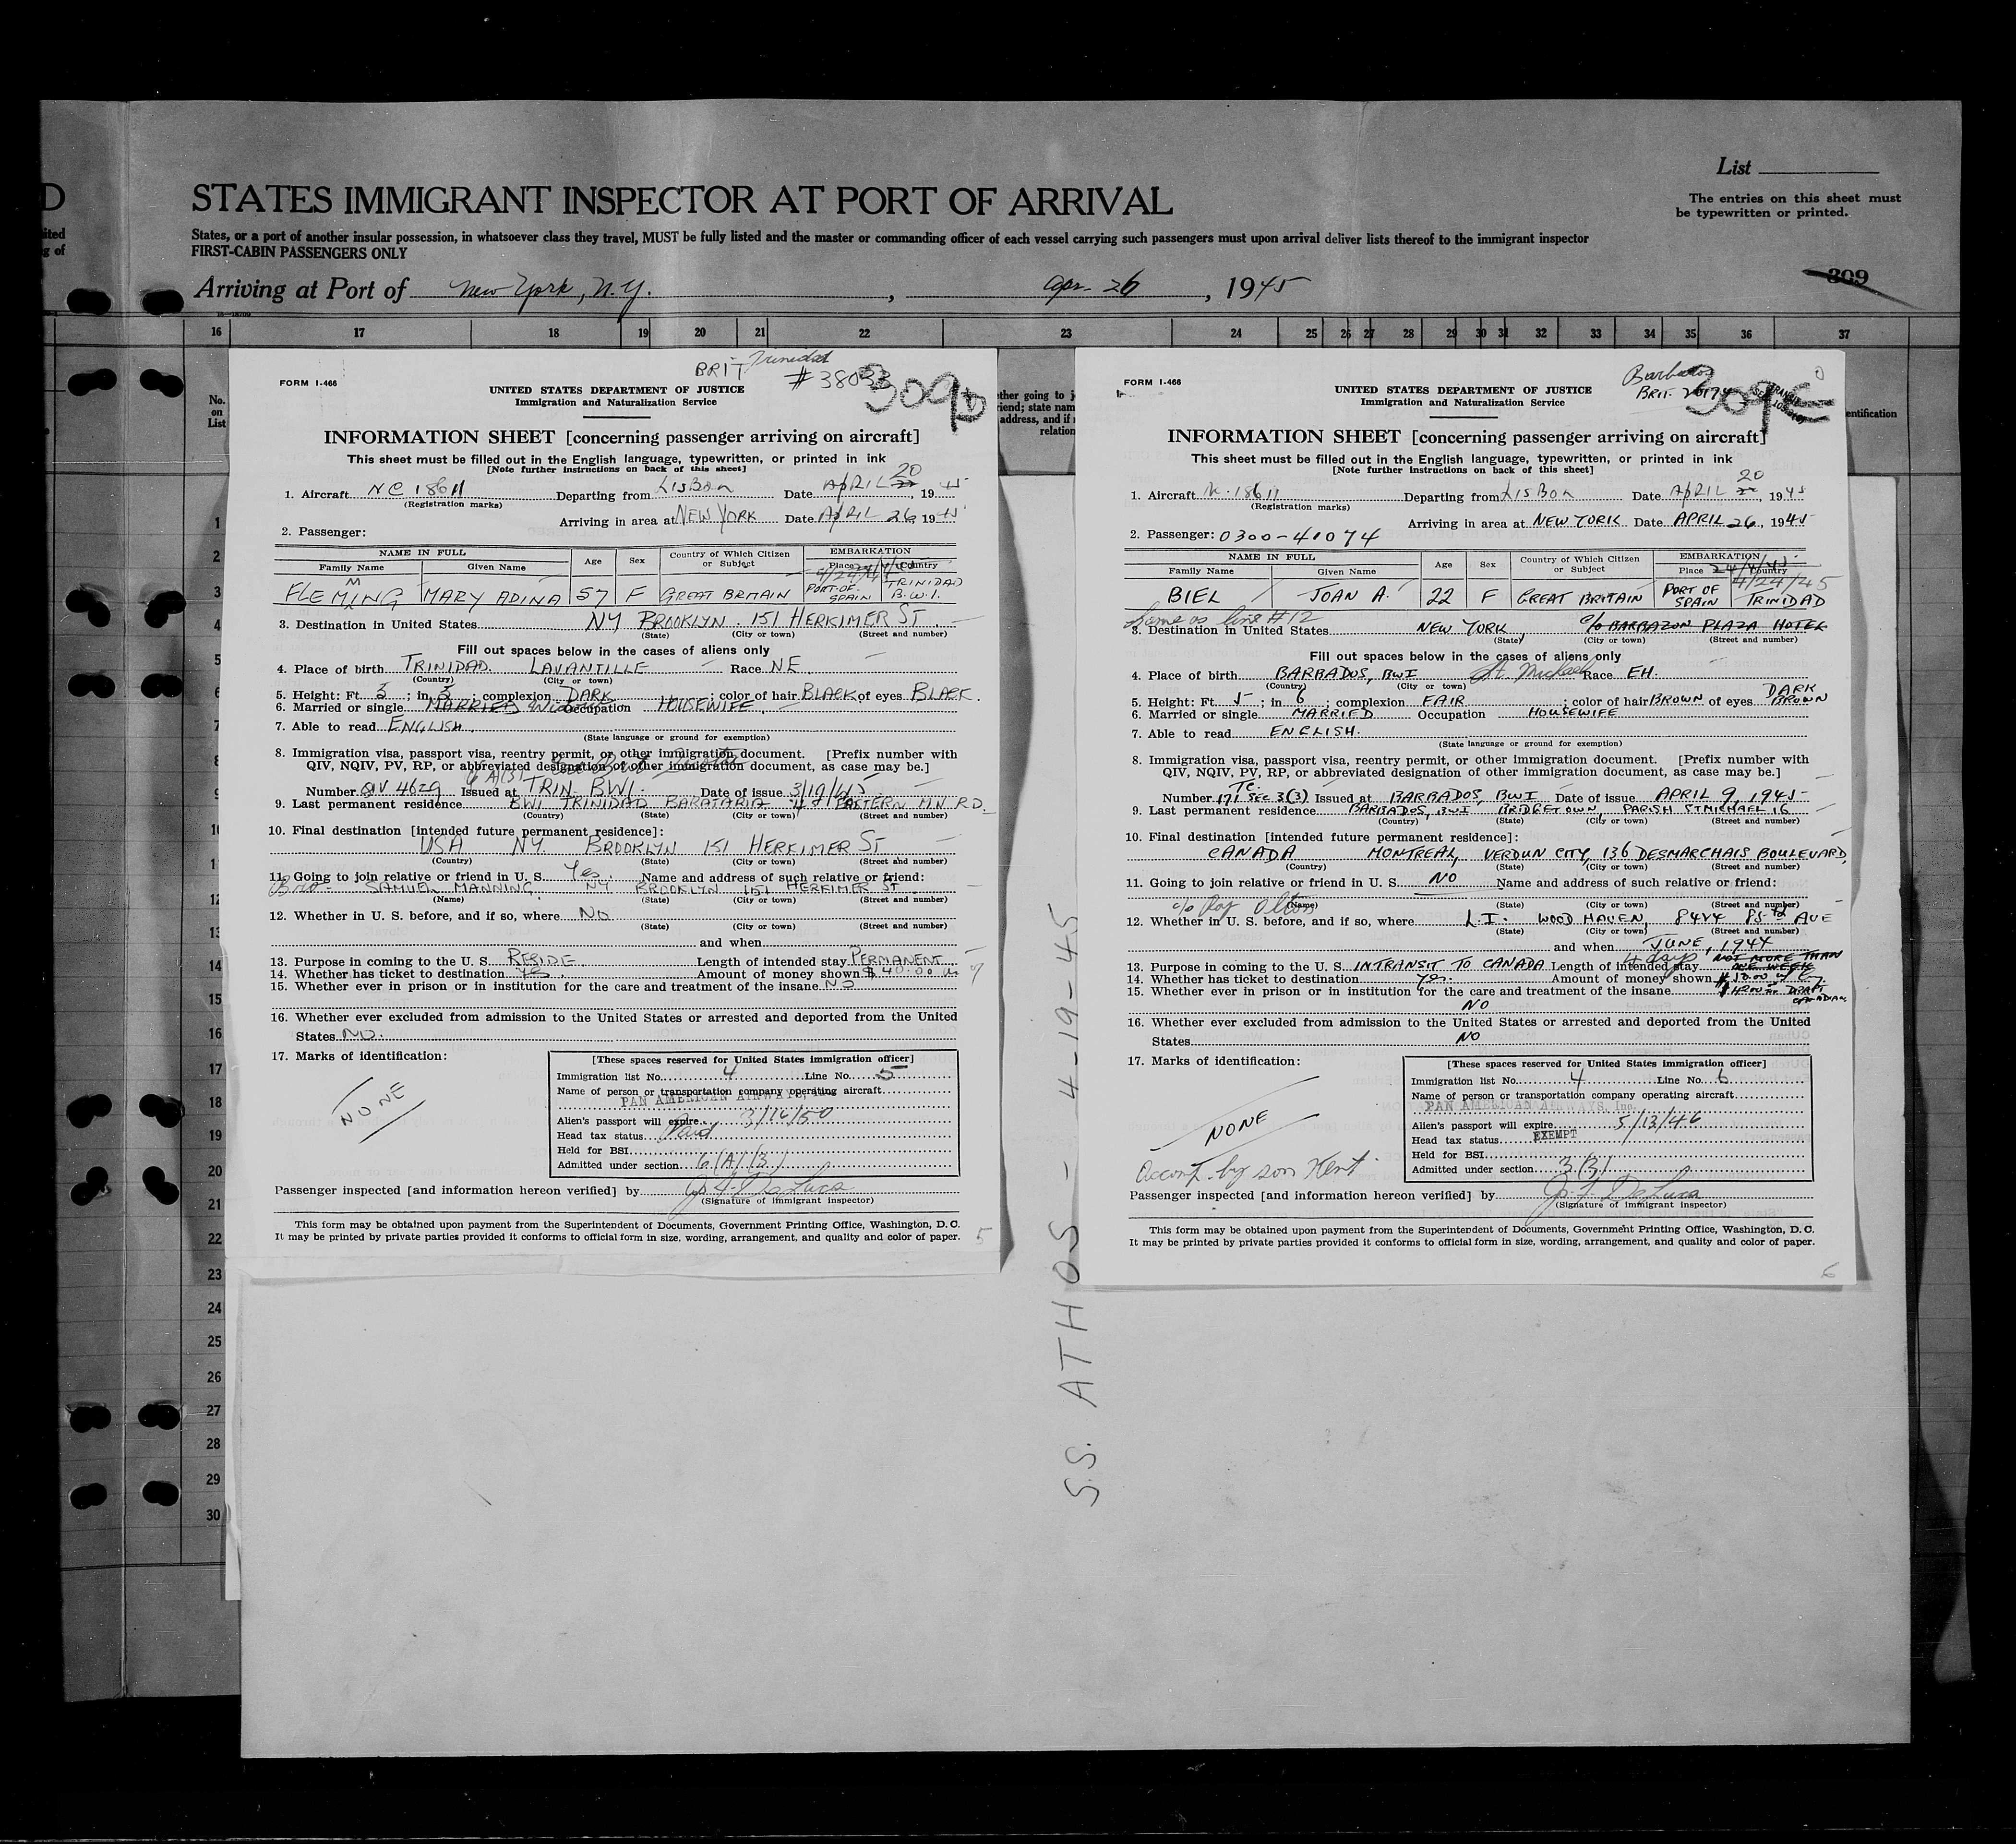 D
STATES IMMIGRANT INSPECTOR AT PORT OF ARRIVAL
List
The entries on this sheet must
be typewritten or printed.
ited
g of
States, or a port of another insular possession, in whatsoever class they travel, MUST be fully listed and the master or commanding officer of each vessel carrying such passengers must upon arrival deliver lists thereof to the immigrant inspector
FIRST-CABIN PASSENGERS ONLY
Arriving at Port of New York, N.Y., Apr. 26, 1945
309
16 17 18 19 20 21 22 23 24 25 26 27 28 29 30 31 32 33 34 35 36 37
No.
on
List
ether going to j
riend; state nam
address, and if
relation
entification
1
2
3
4
5
6
7
8
9
10
11
12
13
14
15
16
17
18
19
20
21
22
23
24
25
26
27
28
29
30
BRIT Trinidad
#38033
309D
FORM I-466
UNITED STATES DEPARTMENT OF JUSTICE
Immigration and Naturalization Service
INFORMATION SHEET [concerning passenger arriving on aircraft]
This sheet must be filled out in the English language, typewritten, or printed in ink
[Note further instructions on back of this sheet]
1. Aircraft NC 18611 Departing from LISBON Date APRIL 20, 1945
(Registration marks)
Arriving in area at NEW YORK Date APRIL 26, 1945
2. Passenger:
NAME IN FULL Age Sex Country of Which Citizen or Subject EMBARKATION
Family Name Given Name Place Country
FLEMMING MARY ADINA 57 F GREAT BRITAIN PORT-OF-SPAIN TRINIDAD B.W.I.
3. Destination in United States NY BROOKLYN. 151 HERKIMER ST.
(State) (City or town) (Street and number)
Fill out spaces below in the cases of aliens only
4. Place of birth TRINIDAD. LAVANTILLE Race NE
(Country) (City or town)
5. Height: Ft. 5; in. 3; complexion DARK; color of hair BLACK of eyes BLACK.
6. Married or single MARRIED Widow Occupation HOUSEWIFE
7. Able to read ENGLISH.
(State language or ground for exemption)
8. Immigration visa, passport visa, reentry permit, or other immigration document. [Prefix number with
QIV, NQIV, PV, RP, or abbreviated designation of other immigration document, as case may be.]
6 A(3)
Number QIV 4629 Issued at TRIN. BWI. Date of issue 3/19/45
9. Last permanent residence BWI TRINIDAD BARATARIA 42 EASTERN MN RD.
(Country) (State) (City or town) (Street and number)
10. Final destination [intended future permanent residence]:
USA NY BROOKLYN 151 HERKIMER ST
(Country) (State) (City or town) (Street and number)
11. Going to join relative or friend in U. S. Yes. Name and address of such relative or friend:
Bro- SAMUEL MANNING NY BROOKLYN 151 HERKIMER ST.
(Name) (State) (City or town) (Street and number)
12. Whether in U. S. before, and if so, where NO
(State) (City or town) (Street and number)
and when
13. Purpose in coming to the U. S. RESIDE Length of intended stay PERMANENT
14. Whether has ticket to destination yes. Amount of money shown $40.00
15. Whether ever in prison or in institution for the care and treatment of the insane NO
16. Whether ever excluded from admission to the United States or arrested and deported from the United
States NO.
17. Marks of identification:
NONE
[These spaces reserved for United States immigration officer]
Immigration list No. 4 Line No. 5
Name of person or transportation company operating aircraft
PAN AMERICAN AIRWAYS, Inc.
Alien's passport will expire 3/16/50
Head tax status Paid
Held for BSI
Admitted under section 6(A)(3)
Passenger inspected [and information hereon verified] by J. F. DeLuca
(Signature of immigrant inspector)
This form may be obtained upon payment from the Superintendent of Documents, Government Printing Office, Washington, D. C.
It may be printed by private parties provided it conforms to official form in size, wording, arrangement, and quality and color of paper.
5
S.S. ATHOS - 4-19-45
Barbados
BRIT.
309E
FORM I-466
UNITED STATES DEPARTMENT OF JUSTICE
Immigration and Naturalization Service
INFORMATION SHEET [concerning passenger arriving on aircraft]
This sheet must be filled out in the English language, typewritten, or printed in ink
[Note further instructions on back of this sheet]
1. Aircraft N. 18611 Departing from LISBON Date APRIL 20, 1945
(Registration marks)
Arriving in area at NEW YORK Date APRIL 26, 1945
2. Passenger: 0300-41074
NAME IN FULL Age Sex Country of Which Citizen or Subject EMBARKATION
Family Name Given Name Place Country
4/24/45
BIEL JOAN A. 22 F GREAT BRITAIN PORT OF SPAIN TRINIDAD
Same as line #12
3. Destination in United States NEW YORK c/o BARBAZON PLAZA HOTEL
(State) (City or town) (Street and number)
Fill out spaces below in the cases of aliens only
4. Place of birth BARBADOS, BWI St. Michael Race EH.
(Country) (City or town)
5. Height: Ft. 5; in. 6; complexion FAIR; color of hair BROWN of eyes DARK BROWN
6. Married or single MARRIED Occupation HOUSEWIFE
7. Able to read ENGLISH.
(State language or ground for exemption)
8. Immigration visa, passport visa, reentry permit, or other immigration document. [Prefix number with
QIV, NQIV, PV, RP, or abbreviated designation of other immigration document, as case may be.]
TC.
Number 171 SEC 3(3) Issued at BARBADOS, BWI Date of issue APRIL 9, 1945
9. Last permanent residence BARBADOS, BWI BRIDGETOWN, PARISH ST MICHAEL 16
(Country) (State) (City or town) (Street and number)
10. Final destination [intended future permanent residence]:
CANADA MONTREAL, VERDUN CITY, 136 DESMARCHAIS BOULEVARD,
(Country) (State) (City or town) (Street and number)
11. Going to join relative or friend in U. S. NO Name and address of such relative or friend:
(Name) (State) (City or town) (Street and number)
c/o Ray Olton
12. Whether in U. S. before, and if so, where L.I. WOOD HAVEN, 8444 85TH AVE
(State) (City or town) (Street and number)
and when JUNE, 1944
4 days NOT MORE THAN
13. Purpose in coming to the U. S. INTRANSIT TO CANADA Length of intended stay ONE WEEK
14. Whether has ticket to destination Yes. Amount of money shown $10.00
15. Whether ever in prison or in institution for the care and treatment of the insane DRAFT CANADIAN
NO
16. Whether ever excluded from admission to the United States or arrested and deported from the United
States NO
17. Marks of identification:
NONE
Accomp. by son Kent.
[These spaces reserved for United States immigration officer]
Immigration list No. 4 Line No. 6
Name of person or transportation company operating aircraft
PAN AMERICAN AIRWAYS, Inc.
Alien's passport will expire 5/13/46
Head tax status EXEMPT
Held for BSI
Admitted under section 3(3)
Passenger inspected [and information hereon verified] by J. F. DeLuca
(Signature of immigrant inspector)
This form may be obtained upon payment from the Superintendent of Documents, Government Printing Office, Washington, D. C.
It may be printed by private parties provided it conforms to official form in size, wording, arrangement, and quality and color of paper.
6